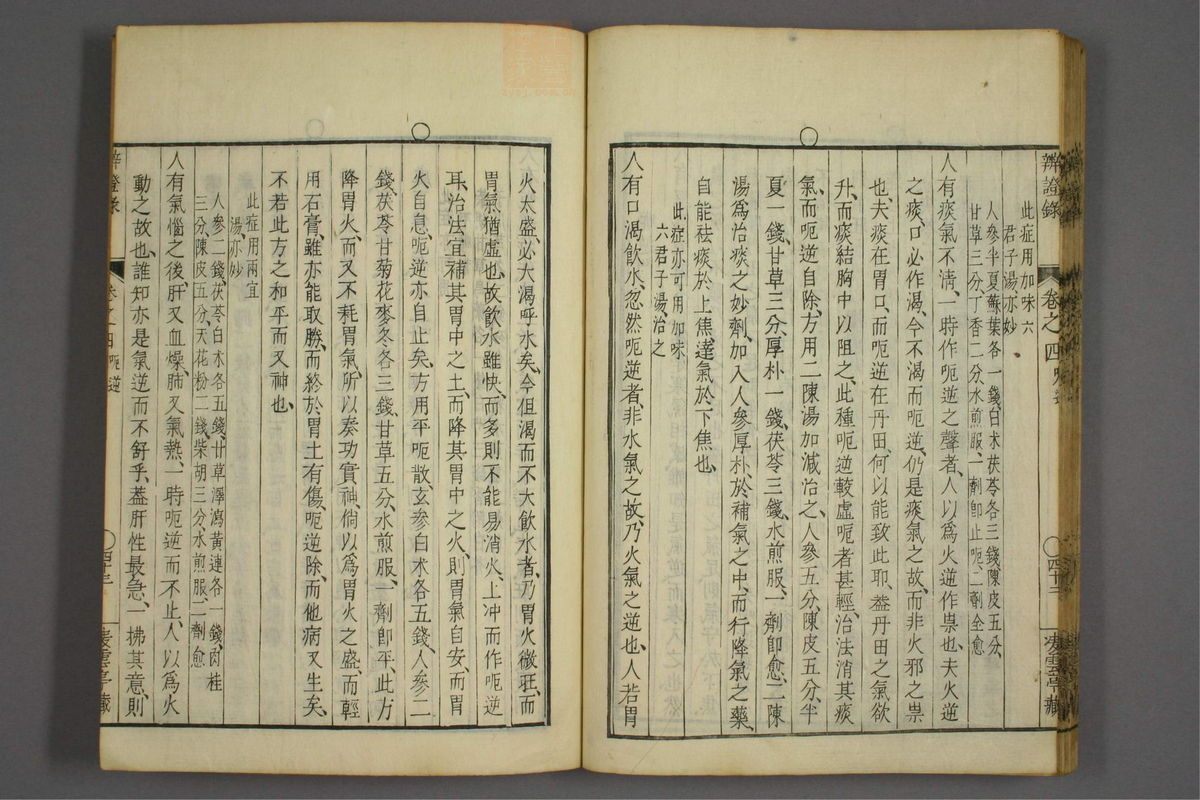 辨證錄 卷之四 呃逆 四十三 凌雲亭藏
此症用加味六
君子湯亦妙
人參半夏蘇葉各一錢白朮茯苓各三錢陳皮五分、
甘草三分、丁香二分水煎服、一劑卽止呃、二劑全愈
人有痰氣不清、一時作呃逆之聲者、人以爲火逆作祟也、夫火逆
之痰、口必作渴、今不渴而呃逆、仍是痰氣之故、而非火邪之祟
也、夫痰在胃口、而呃逆在丹田、何以能致此耶、蓋丹田之氣欲
升、而痰結胸中以阻之、此種呃逆較虛呃者甚輕、治法消其痰
氣、而呃逆自除、方用二陳湯加減治之、人參五分、陳皮五分、半
夏一錢、甘草三分、厚朴一錢、茯苓三錢、水煎服、一劑卽愈、二陳
湯爲治痰之妙劑、加入人參厚朴、於補氣之中、而行降氣之藥、
自能祛痰於上焦、達氣於下焦也、
此症亦可用加味
六君子湯、治之
人有口渴飲水、忽然呃逆者、非水氣之故、乃火氣之逆也、人若胃
火太盛、必大渴呼水矣、今但渴而不大飲水者、乃胃火微旺、而
胃氣猶虛也、故飲水雖快、而多則不能易消、火上冲而作呃逆
耳、治法宜補其胃中之土、而降其胃中之火、則胃氣自安、而胃
火自息、呃逆亦自止矣、方用平呃散、玄參白朮各五錢、人參二
錢、茯苓甘菊花麥冬各三錢、甘草五分、水煎服、一劑卽平、此方
降胃火、而又不耗胃氣、所以奏功實神、倘以爲胃火之盛、而輕
用石膏、雖亦能取勝、而終於胃土有傷、呃逆除、而他病又生矣、
不若此方之和平而又神也、
此症用兩宜
湯亦妙
人參二錢、茯苓白朮各五錢、甘草澤瀉黃連各一錢、肉桂
三分、陳皮五分、天花粉二錢、柴胡三分、水煎服、二劑愈
人有氣惱之後、肝又血燥、肺又氣熱、一時呃逆而不止、人以爲火
動之故也、誰知亦是氣逆而不舒乎、蓋肝性最急、一拂其意、則
辨證錄 卷之四 呃逆 四十三 凌雲亭藏